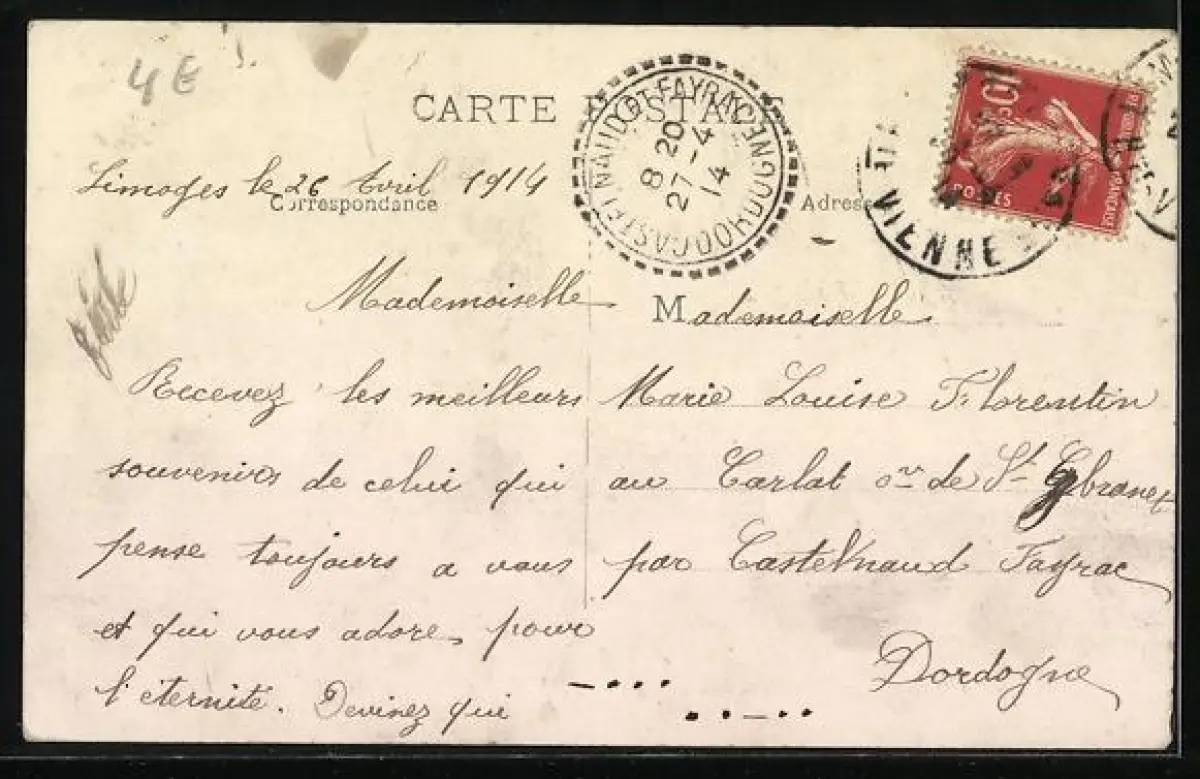 4E
CARTE POSTALE
CASTELNAUD ET FAYRAC
DORDOGNE
8 20
27 - 4
14
VIENNE
10
POSTES
FRANÇAISE
Limoges le 26 Avril 1914
Correspondance
Adresse
Mademoiselle
Recevez les meilleurs
souvenirs de celui qui
pense toujours a vous
et qui vous adore, pour
l'éternité. Devinez qui
Mademoiselle
Marie Louise Florentin
au Carlat cne de St
par Castelnaud Fayrac
Dordogne